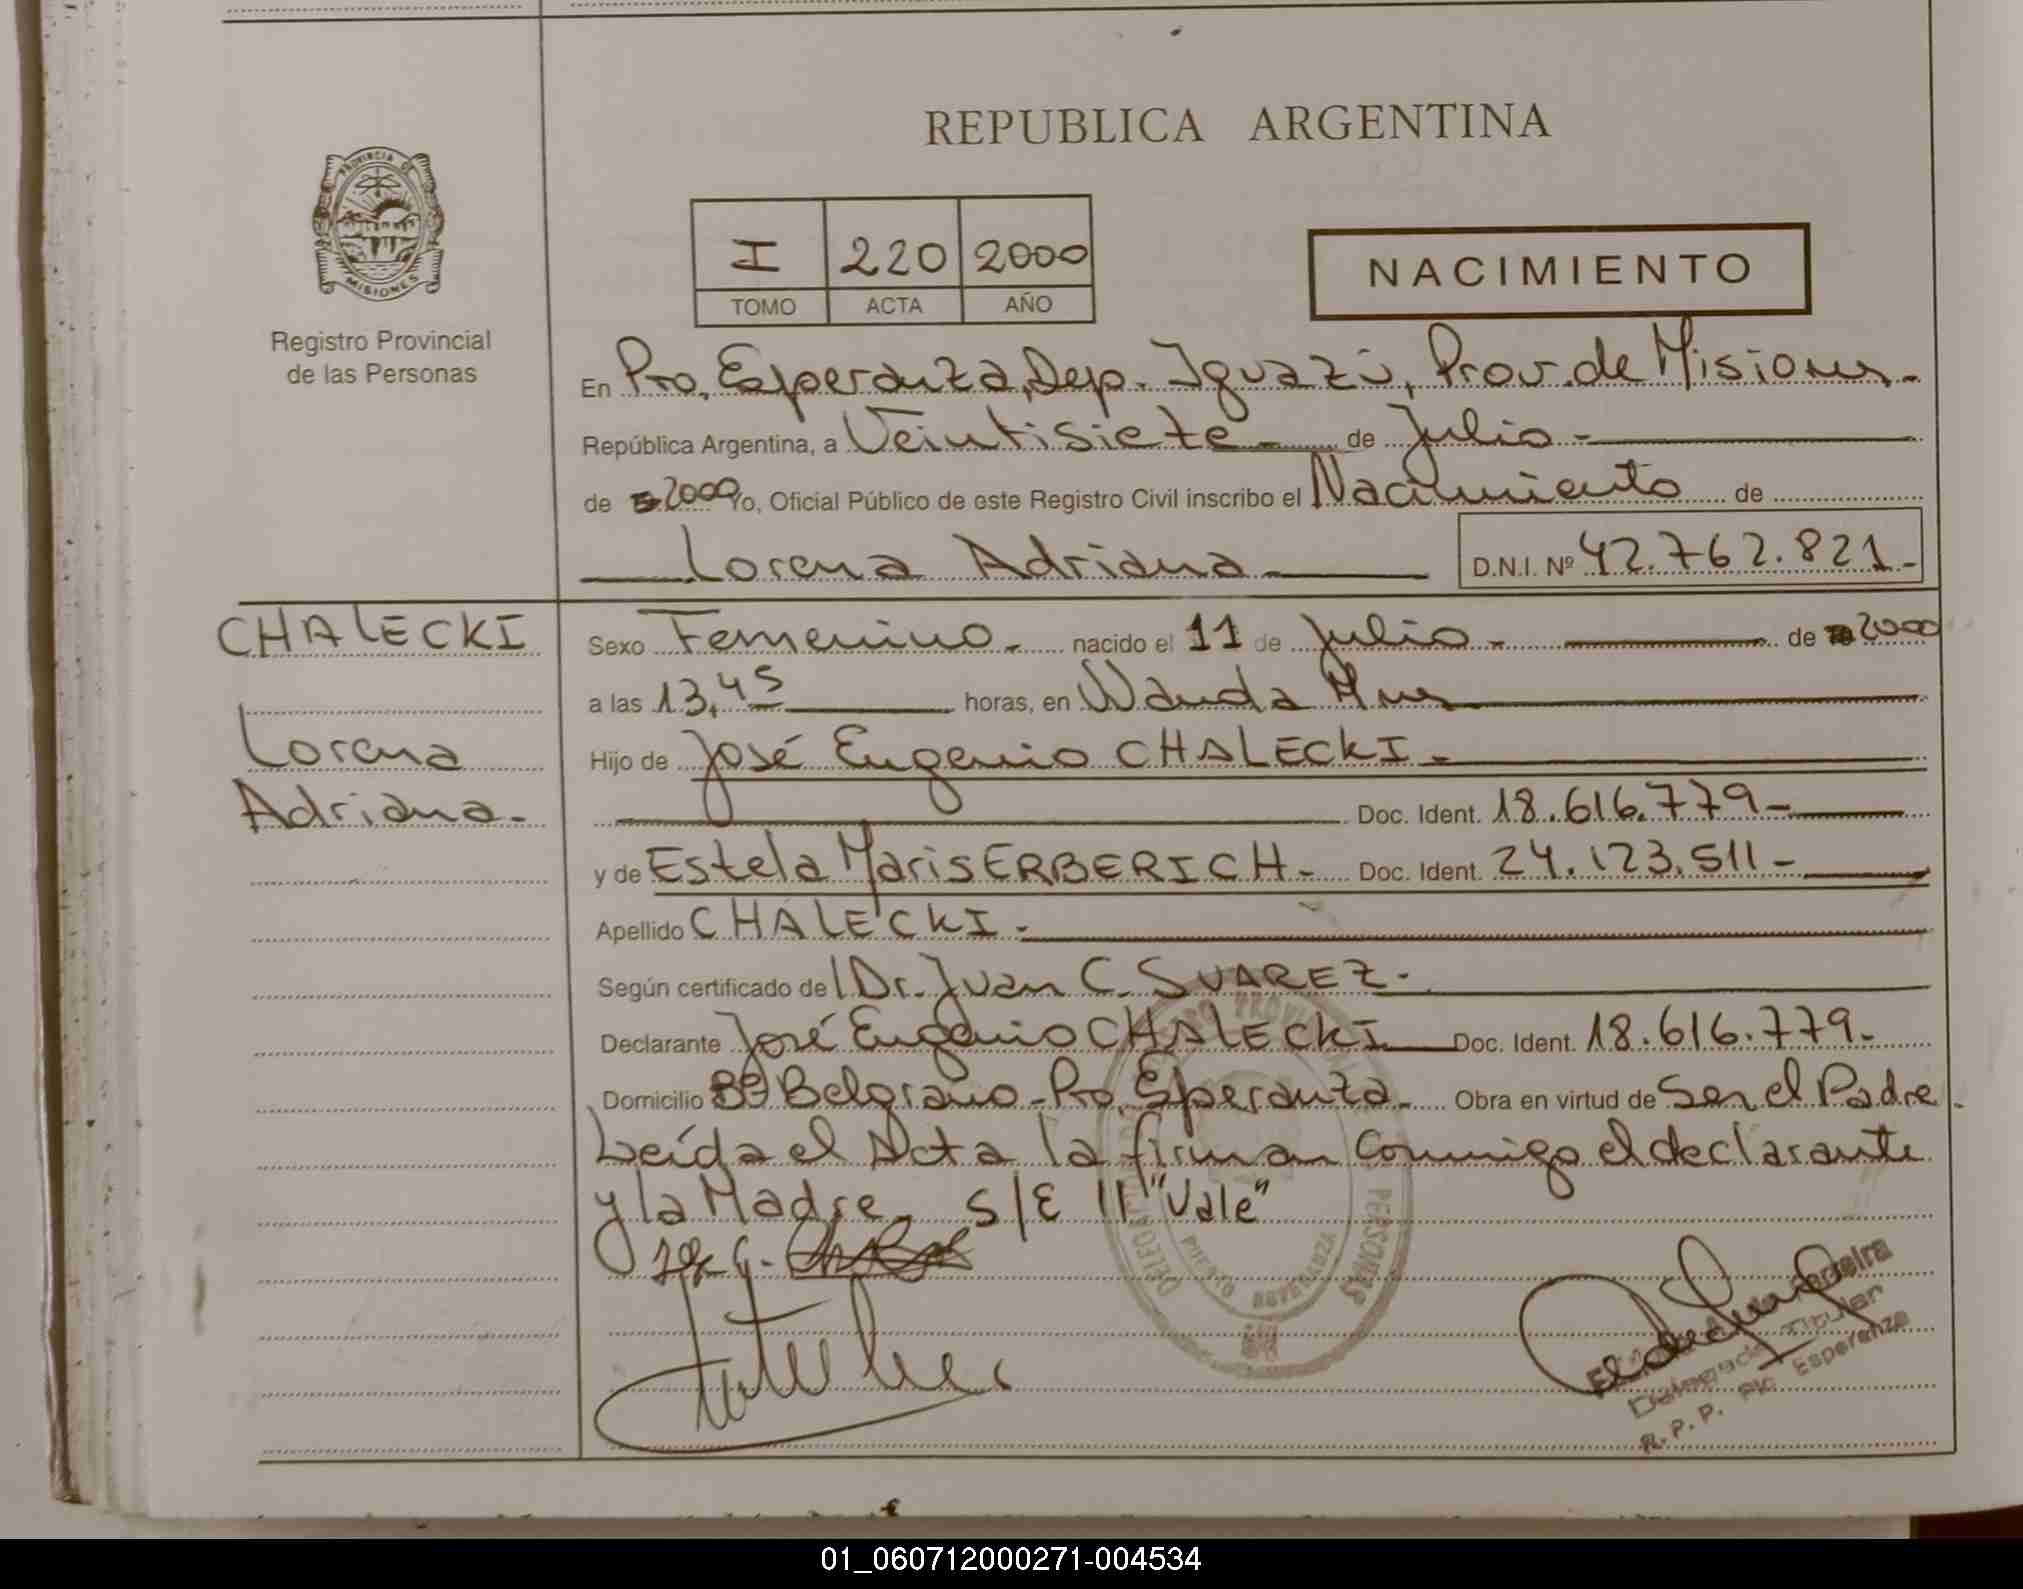 REPUBLICA ARGENTINA
PROVINCIA DE
MISIONES
Registro Provincial
de las Personas
I 220 2000
TOMO ACTA AÑO
NACIMIENTO
En Pto. Esperanza, Dep. Iguazú, Prov. de Misiones.-
República Argentina, a Veintisiete.- de Julio.-
de 2000 Yo, Oficial Público de este Registro Civil inscribo el Nacimiento de
Lorena Adriana.- D.N.I. Nº 42.762.821.-
CHALECKI
Lorena
Adriana.-
Sexo Femenino.- nacido el 11 de Julio.- de 2000
a las 13,45 horas, en Wanda Mnes
Hijo de José Eugenio CHALECKI.-
Doc. Ident. 18.616.779.-
y de Estela Maris ERBERICH.- Doc. Ident. 24.123.511.-
Apellido CHALECKI.-
Según certificado del Dr. Juan C. SUAREZ.-
Declarante José Eugenio CHALECKI Doc. Ident. 18.616.779.-
Domicilio Bº Belgrano - Pto. Esperanza.- Obra en virtud de Ser el Padre.
Leída el Acta la firman conmigo el declarante
y la Madre. S/E 11 "Vale"
PERSONAS
PUERTO ESPERANZA
Ferreira
Delegada Titular
R.P.P. Pto. Esperanza
01_060712000271-004534